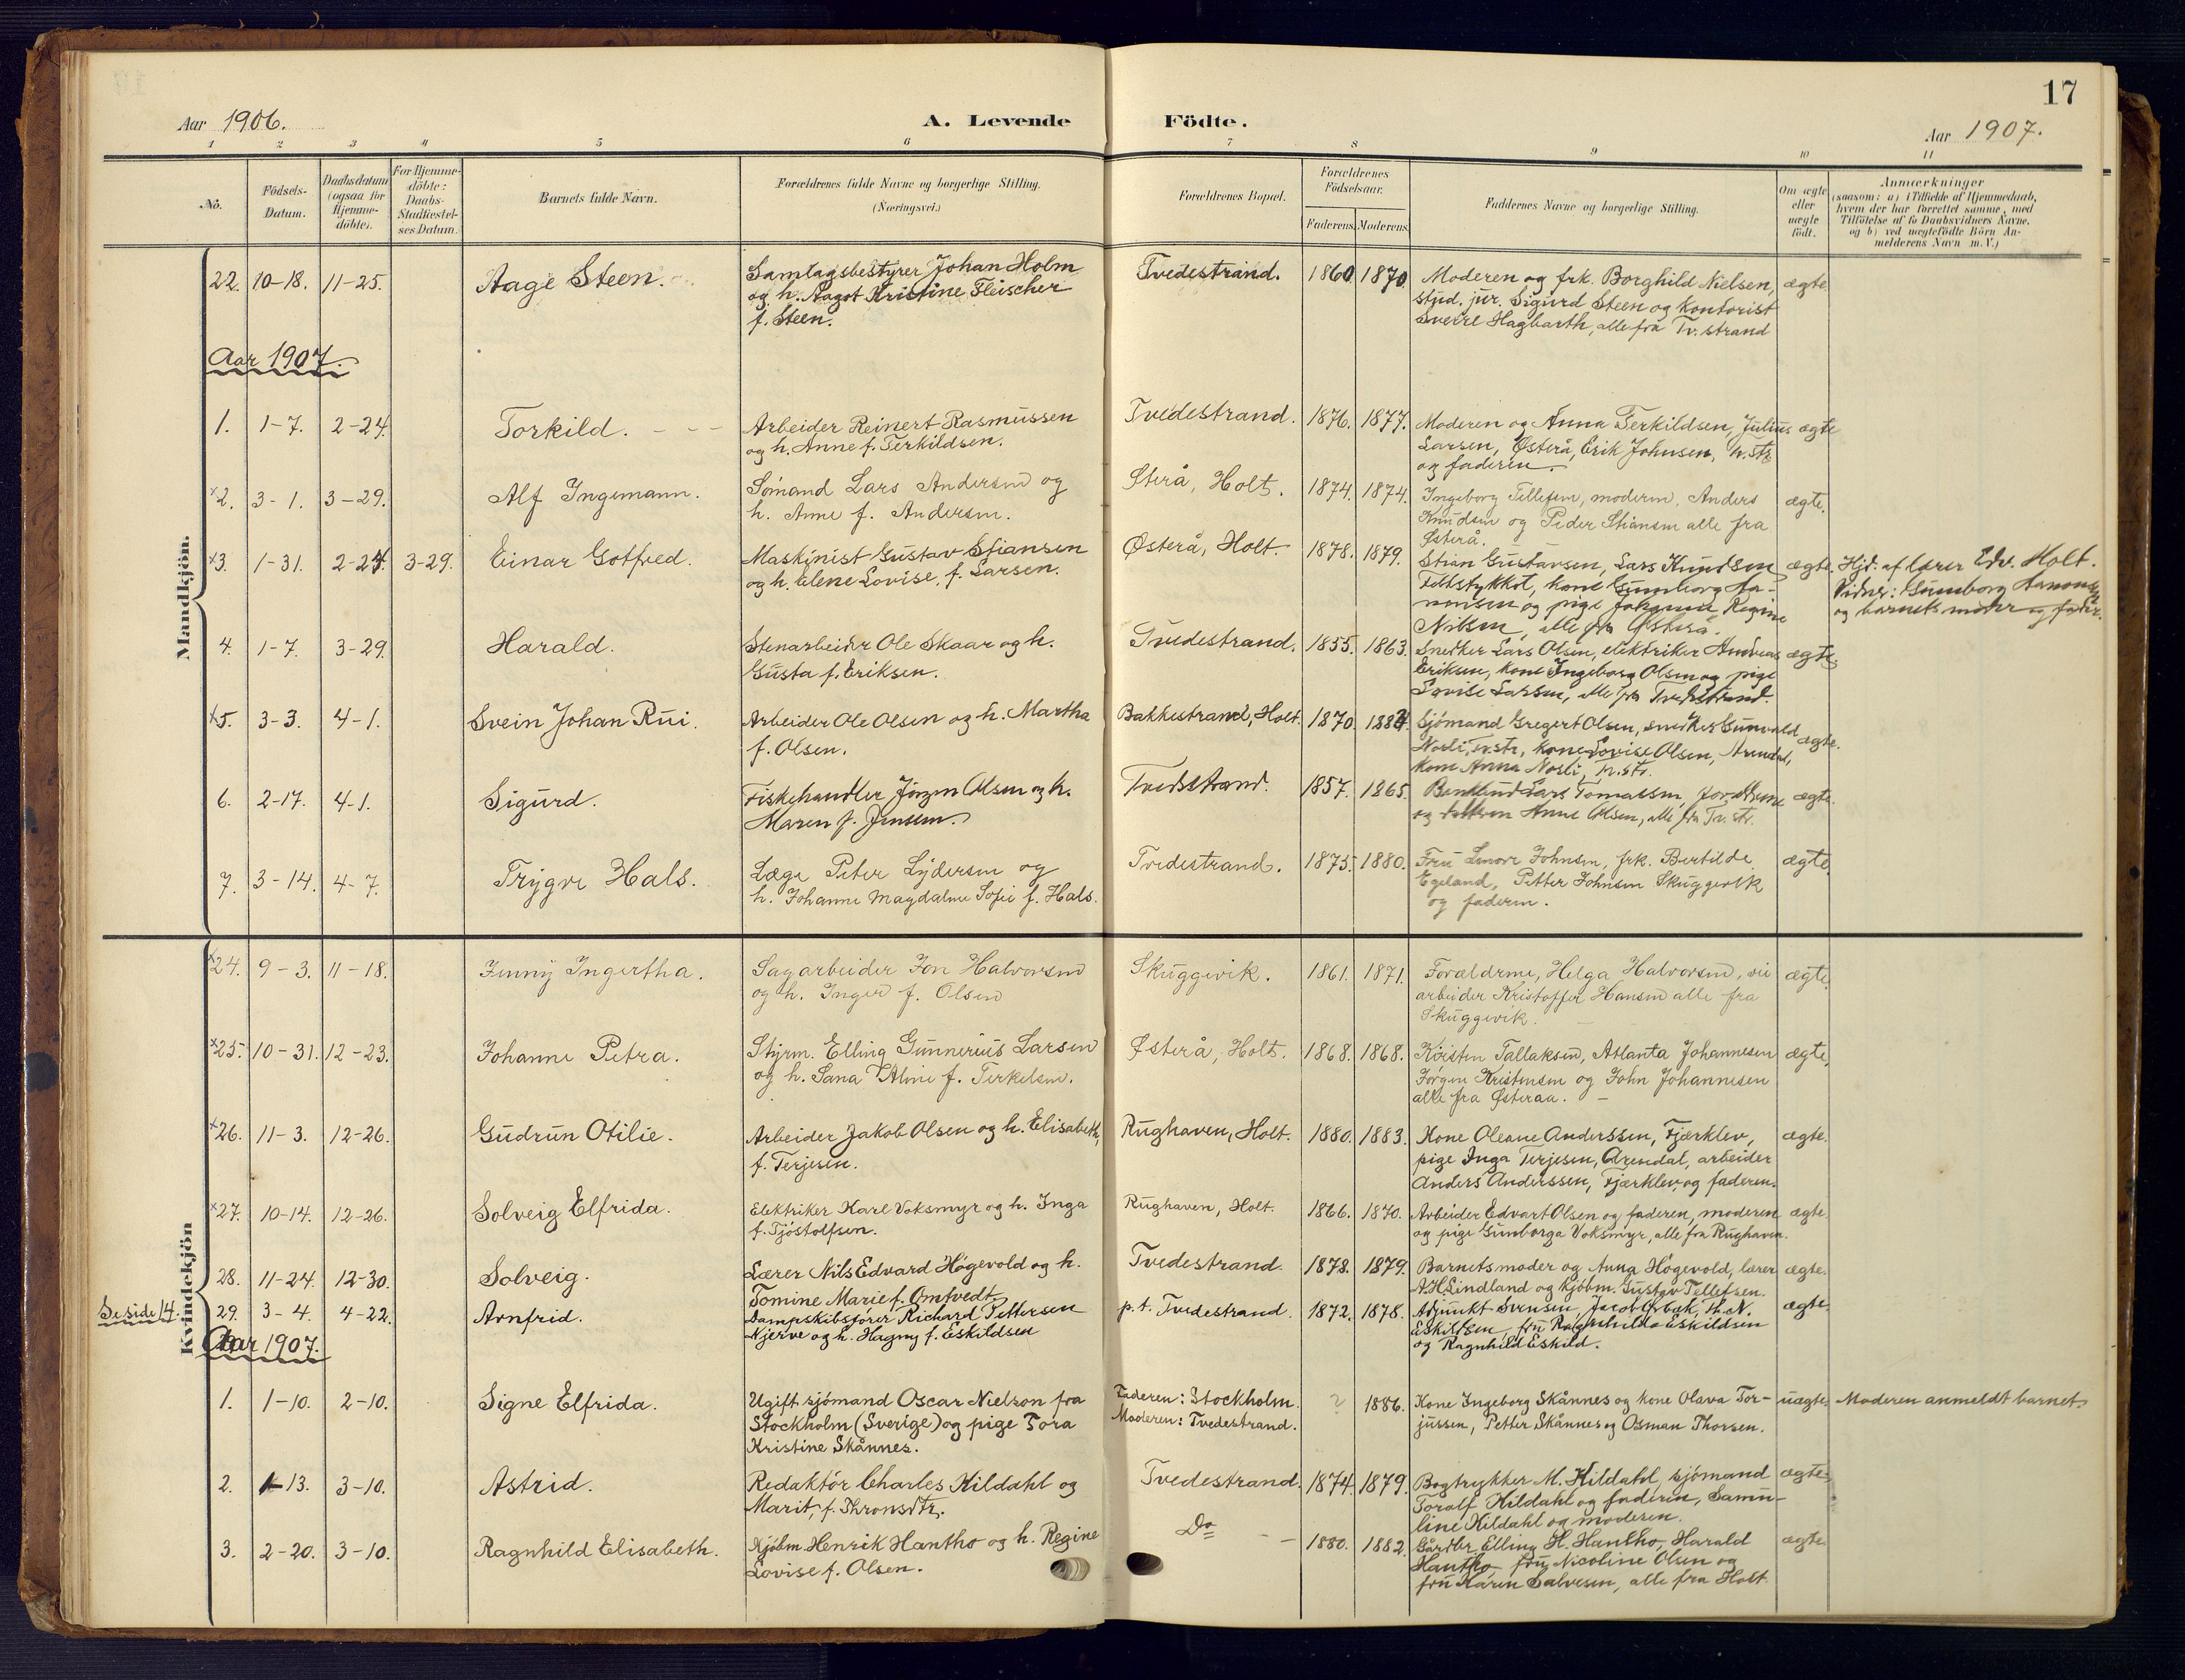 17
Aar 1906.
A. Levende Födte.
Aar 1907.
1 2 3 4 5 6 7 8 9 10 11
No.
Födsels-
Datum.
Daabsdatum
(ogsaa for
Hjemme-
döbte).
For Hjemme-
döbte:
Daabs-
Stadfæstel-
ses Datum.
Barnets fulde Navn.
Forældrenes fulde Navne og borgerlige Stilling.
(Næringsvei.)
Forældrenes Bopæl.
Forældrenes
Födselsaar.
Faderens. Moderens.
Faddernes Navne og borgerlige Stilling.
Om ægte
eller
uægte
födt.
Anmærkninger
(saasom: a) i Tilfælde af Hjemmedaab,
hvem der har forrettet samme, med
Tilföielse af to Daabsvidners Navne,
og b) ved uægtefödte Börn An-
melderens Navn m. V.)
Mandkjön.
22. 10-18. 11-25. Aage Steen.
Samlagsbestyrer Johan Holm
og h. Aagot Kristine Fleischer
f. Steen.
Tvedestrand. 1860. 1870.
Moderen og frk. Borghild Nielsen,
stud. jur. Sigurd Steen og kontorist
Sverre Hagbarth, alle fra Tv. strand
ægte.
Aar 1907.
1. 1-7. 2-24. Torkild.
Arbeider Reinert Rasmussen
og h. Anne f. Terkildsen.
Tvedestrand. 1876. 1877.
Moderen og Anna Terkildsen, Julius
Larsen, Østerå, Erik Johnsen, Tv. str.
og faderen.
ægte
x2. 3-1. 3-29. Alf Ingemann.
Sømand Lars Andersen og
h. Anne f. Andersen.
Østerå, Holt. 1874. 1874.
Ingeborg Tellefsen, moderen, Anders
Knudsen og Peder Stiansen alle fra
Østerå.
ægte.
x3. 1-31. 2-24. 3-29. Einar Gotfred.
Maskinist Gustav Stiansen
og h. Elene Lovise, f. Larsen.
Østerå, Holt. 1878. 1879.
Stian Gustavsen, Lars Knudsen
kone Gunborg Ha-
nonsen og pige Johanne Regine
Nilsen, alle fra Østerå.
ægte.
Hjd. af lærer Edv. Holt.
Vidner: Gunborg Aanonsen
og barnets moder og fader.
4. 1-7. 3-29. Harald.
Stenarbeider Ole Skaar og h.
Gusta f. Eriksen.
Tvedestrand. 1855. 1863.
Snedker Lars Olsen, elektriker Andreas
Eriksen, kone Ingeborg Olsen og pige
Lovise Larsen, alle fra Tvedestrand.
ægte
x5. 3-3. 4-1. Svein Johan Rui.
Arbeider Ole Olsen og h. Martha
f. Olsen.
Bakkestrand, Holt. 1870. 1884.
Sjømand Gregert Olsen, snedker Gunvald
Nosli, Tv. str., kone Lovise Olsen, Arendal,
kone Anna Nosli, Tv. str.
ægte.
6. 2-17. 4-1. Sigurd.
Fiskehandler Jørgen Olsen og h.
Maren f. Jensen.
Tvedestrand. 1857. 1865.
Lars Tomassen, forældrene
og Anne Olsen, alle fra Tv. str.
ægte.
7. 3-14. 4-7. Trygve Hals.
Læge Peter Lydersen og
h. Johanne Magdalene Sofie f. Hals.
Tvedestrand. 1875. 1880.
Fru Lenore Johnsen, frk. Bertilde
Egeland, Petter Johnsen Skuggevik
og faderen.
ægte.
Kvindekjön
x24. 9-3. 11-18. Jenny Ingertha.
Sagarbeider Jon Halvorsen
og h. Inger f. Olsen
Skuggevik. 1861. 1871.
Forældrene, Helga Halvorsen, vei
arbeider Kristoffer Hansen alle fra
Skuggevik.
ægte.
x25. 10-31. 12-23. Johanne Petra.
Styrm. Elling Gunnerius Larsen
og h. Sana Aline f. Terkelsen.
Østerå, Holt. 1868. 1868.
Kristen Tallaksen, Atlanta Johannesen
Jørgen Kristensen og John Johannesen
alle fra Østeraa.
ægte.
x26. 11-3. 12-26. Gudrun Otilie.
Arbeider Jakob Olsen og h. Elisabeth,
f. Terjesen.
Rughaven, Holt. 1880. 1883.
Kone Oleane Anderssen, Fjærklev,
pige Inga Terjesen, Arendal, arbeider
Anders Anderssen, Fjærklev, og faderen.
ægte.
x27. 10-14. 12-26. Solveig Elfrida.
Elektriker Karl Voksmyr og h. Inga
f. Tjøstolfsen.
Rughaven, Holt. 1866. 1870.
Arbeider Edvart Olsen og faderen, moderen
og pige Gunborga Voksmyr, alle fra Rughaven.
ægte.
28. 11-24. 12-30. Solveig.
Lærer Nils Edvard Høgevold og h.
Tomine Marie f. Omtvedt
Tvedestrand. 1878. 1879.
Barnets moder og Anna Høgevold, lærer
A. H. Lindland og kjøbm. Gustav Tellefsen.
ægte.
Se side 14. 29. 3-4. 4-22. Arnfrid.
Dampskibsfører Richard Pettersen
Njerve og h. Hagny f. Eskildsen
p. t. Tvedestrand. 1872. 1878.
Adjunkt Svensen, Jacob Ørbæk, Th. N.
Eskildsen, fru Ragnhilda Eskildsen
og Ragnhild Eskild.
ægte.
Aar 1907.
1. 1-10. 2-10. Signe Elfrida.
Ugift sjømand Oscar Nielson fra
Stockholm (Sverige) og pige Tora
Kristine Skånnes.
Faderen: Stockholm.
Moderen: Tvedestrand.
? 1886.
Kone Ingeborg Skånnes og kone Olava Tor-
jussen, Petter Skånnes og Osman Thorsen.
uægte. Moderen anmeldt barnet
2. 1-13. 3-10. Astrid.
Redaktör Charles Kildahl og
Marit, f. Thronsdtr.
Tvedestrand. 1874. 1879.
Bogtrykker M. Kildahl, sjömand
Toralf Kildahl og faderen, Samu-
line Kildahl og moderen.
ægte.
3. 2-20. 3-10. Ragnhild Elisabeth.
Kjøbm. Henrik Hantho og h. Regine
Lovise f. Olsen.
Do 1880. 1882.
Gårdbr. Elling H. Hantho, Harald
Hantho, fru Nicoline Olsen og
fru Karen Salvesen, alle fra Holt.
ægte.